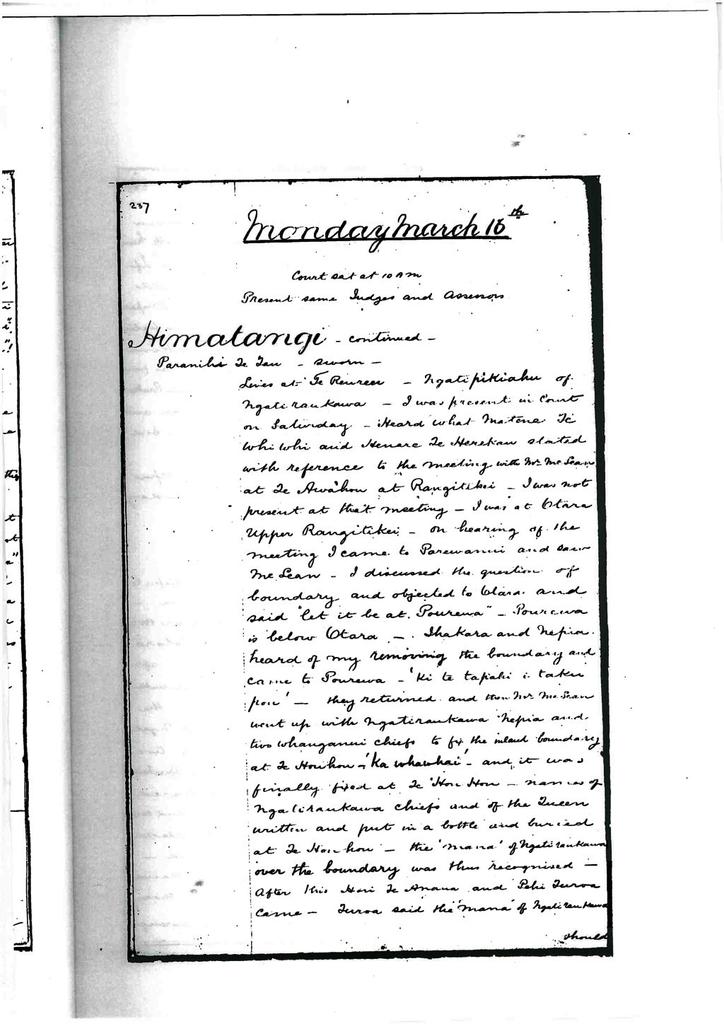 237
Monday March 16th
Court sat at 10 am
Present same Judges and Assessors
Himatangi - continued -
Paranihi Te Tau - sworn -
Lives at Te Reureu - Ngatipikiahu of
Ngatiraukawa - I was present in Court
on Saturday - Heard what Matene Te
Whiwhi and Henare Te Herekau stated
with reference to the meeting with Mr. McLean
at Te Awahou at Rangitikei - I was not
present at that meeting - I was at Otara
Upper Rangitikei - on hearing of the
meeting I came to Parewanui and saw
McLean - I discussed the question of
boundary and objected to Otara and
said "let it be at Pourewa" - Pourewa
is below Otara - Ihakara and Nepia
heard of my removing the boundary and
came to Pourewa - 'Ki te tapahi i taku
pou' - they returned and then Mr. McLean
went up with Ngatiraukawa Nepia and
two Whanganui chiefs to fix the inland boundary
at Te Houhou - 'Ka whawhai' - and it was
finally fixed at Te Hou Hou - names of
Ngatiraukawa chiefs and of the Queen
written and put in a bottle and buried
at Te Hou hou - the 'mana' of Ngatiraukawa
over the boundary was thus recognised -
After this Hori Te Anaua and Pehi Turoa
came - Turoa said the 'mana' of Ngatiraukawa
should